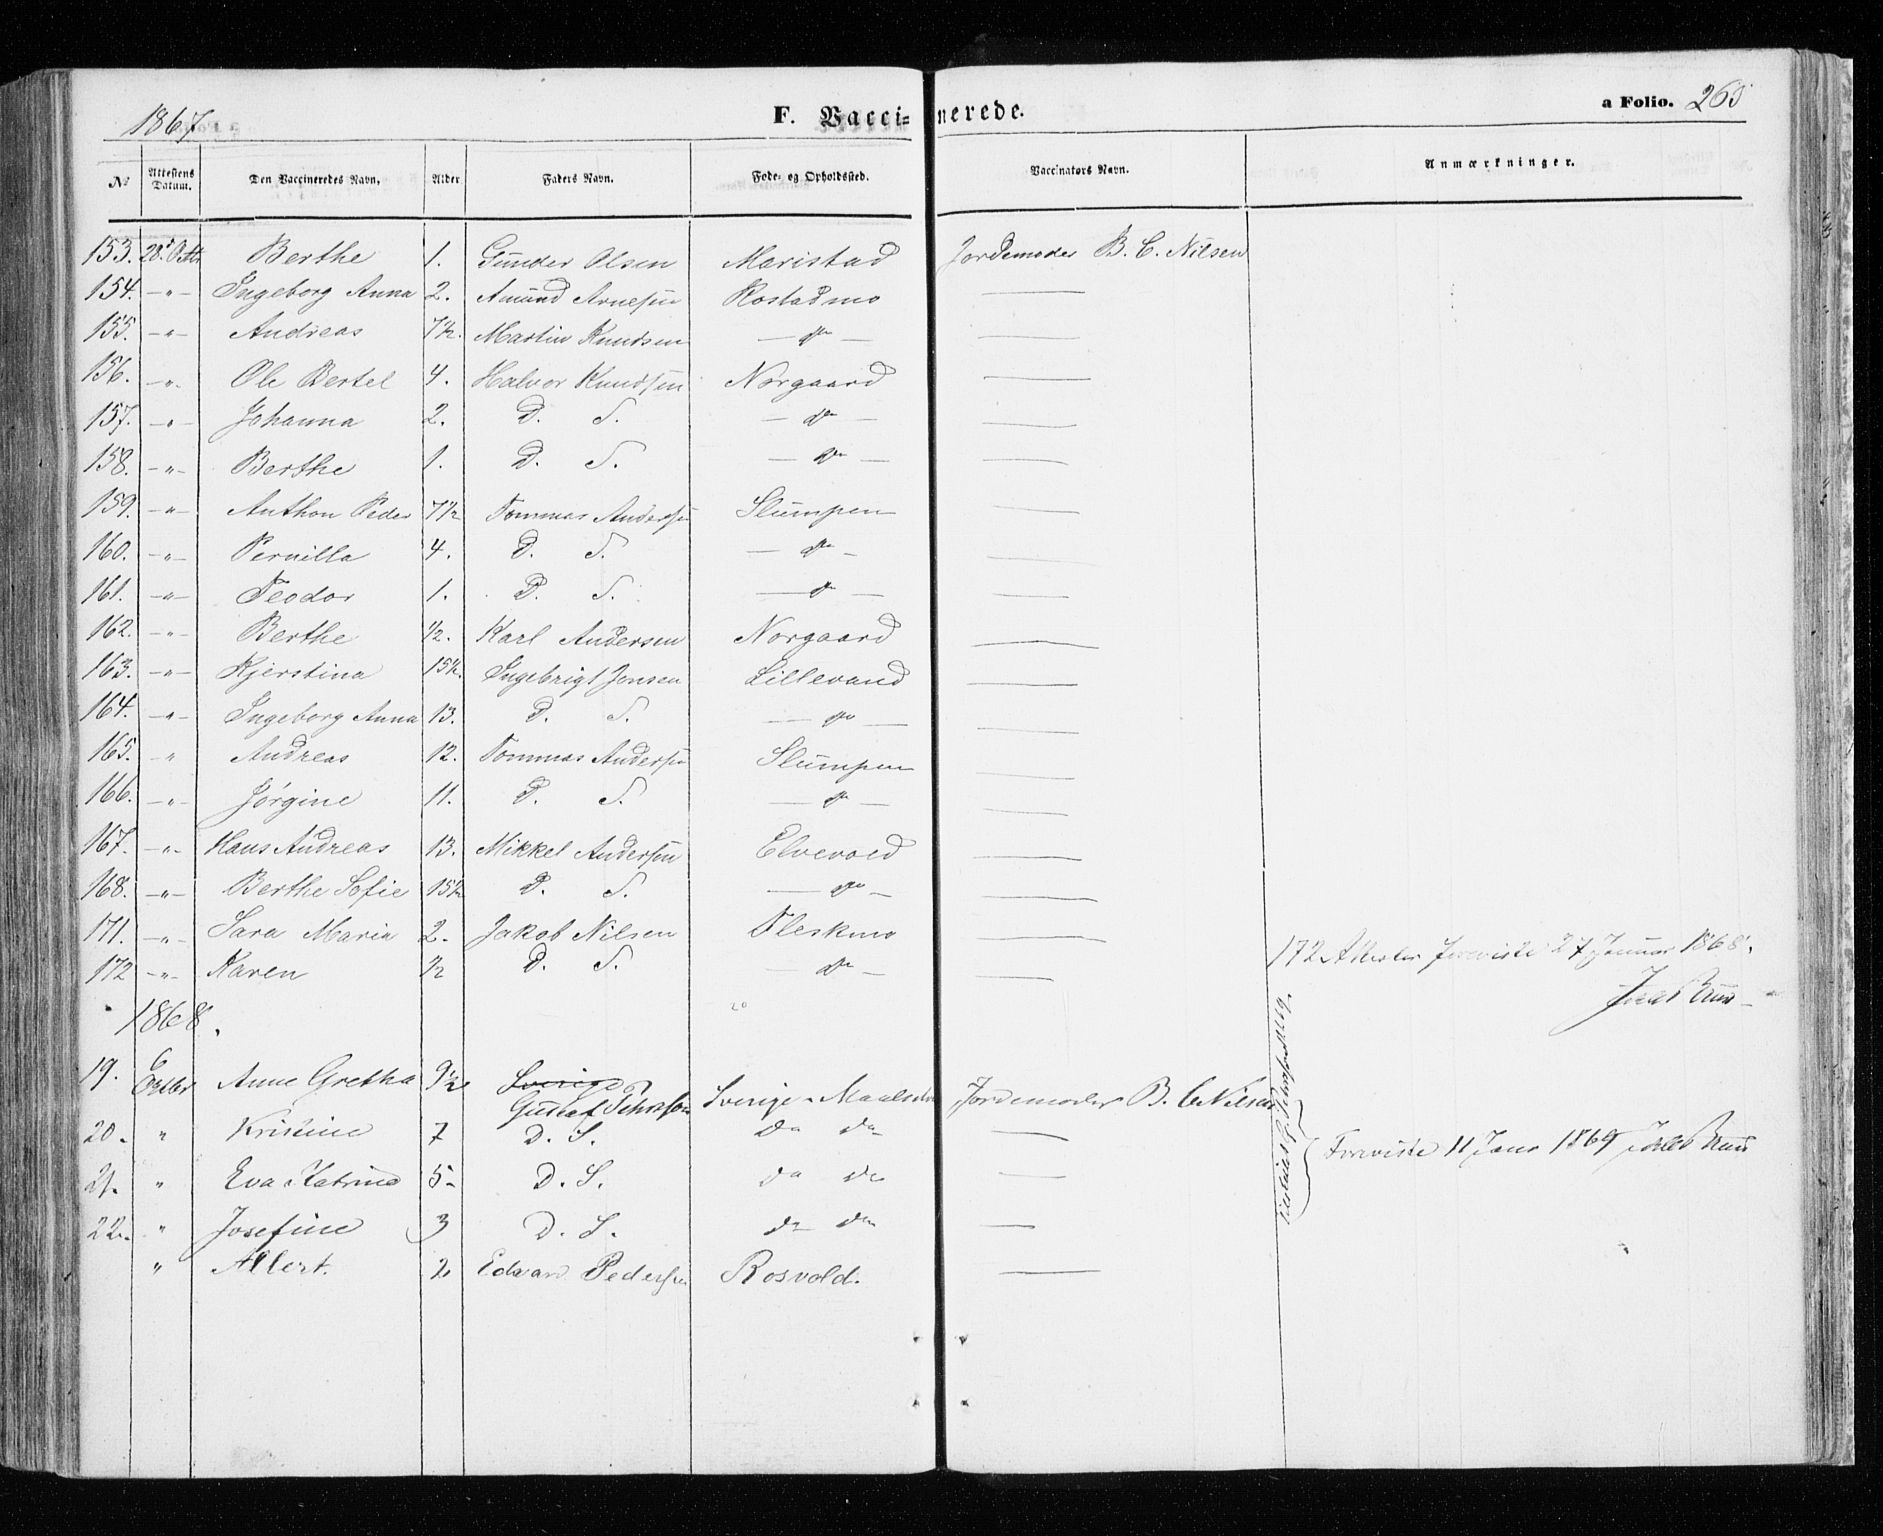 1867
F. Vaccinerede.
a Folio. 265
№ Attestens Datum. Den Vaccineredes Navn. Alder Faders Navn. Føde- og Opholdssted. Vaccinators Navn. Anmærkninger.
153. 28. Octbr Berthe 1. Gunder Olsen Maristad Jordemoder B. C. Nilsen
154. -"- Ingeborg Anna 2. Amund Arnesen Rostadmo
155. -"- Andreas 7½. Martin Knudsen — do —
156. -"- Ole Bertel 4. Halvor Knudsen Norgaard
157. -"- Johanna 2. D. S. — do —
158. -"- Berthe 1. D. S. — do —
159. -"- Anthon Peder 7½ Tommas Andersen Slumpen
160. -"- Pernilla 4. D. S. — do —
161. -"- Teodor 1. D. S. — do —
162. -"- Berthe ½. Karl Andersen Norgaard
163. -"- Kjerstina 15½. Ingebrigt Jensen Lillevand
164. -"- Ingeborg Anna 13. D. S. — do —
165. " Andreas 12. Tommas Andersen Slumpen
166. -"- Jørgine 11. D. S. — do —
167. -"- Hans Andreas 13. Mikkel Andersen Elvevold
168. -"- Berthe Sofie 15½ D. S. — do —
171. -"- Sara Maria 2. Jakob Nilsen Fleskmo
172 -"- Karen ½ D. S. — do —
172 Attester foreviste 27 Januar 1868.
1868.
19. 6 Octbr Anne Gretha 9½ Sverige
Gustaf Sverige - Maalselv Jordemoder B. C Nilsen
20. " Kristine 7 D. S. do do
21. " Eva Katrine 5 - D. S. do do
Foreviste 11 Janr 1869
22. " Josefine 3 D. S. do do
" Albert. 2 Edvard Pedersen Rosvold.